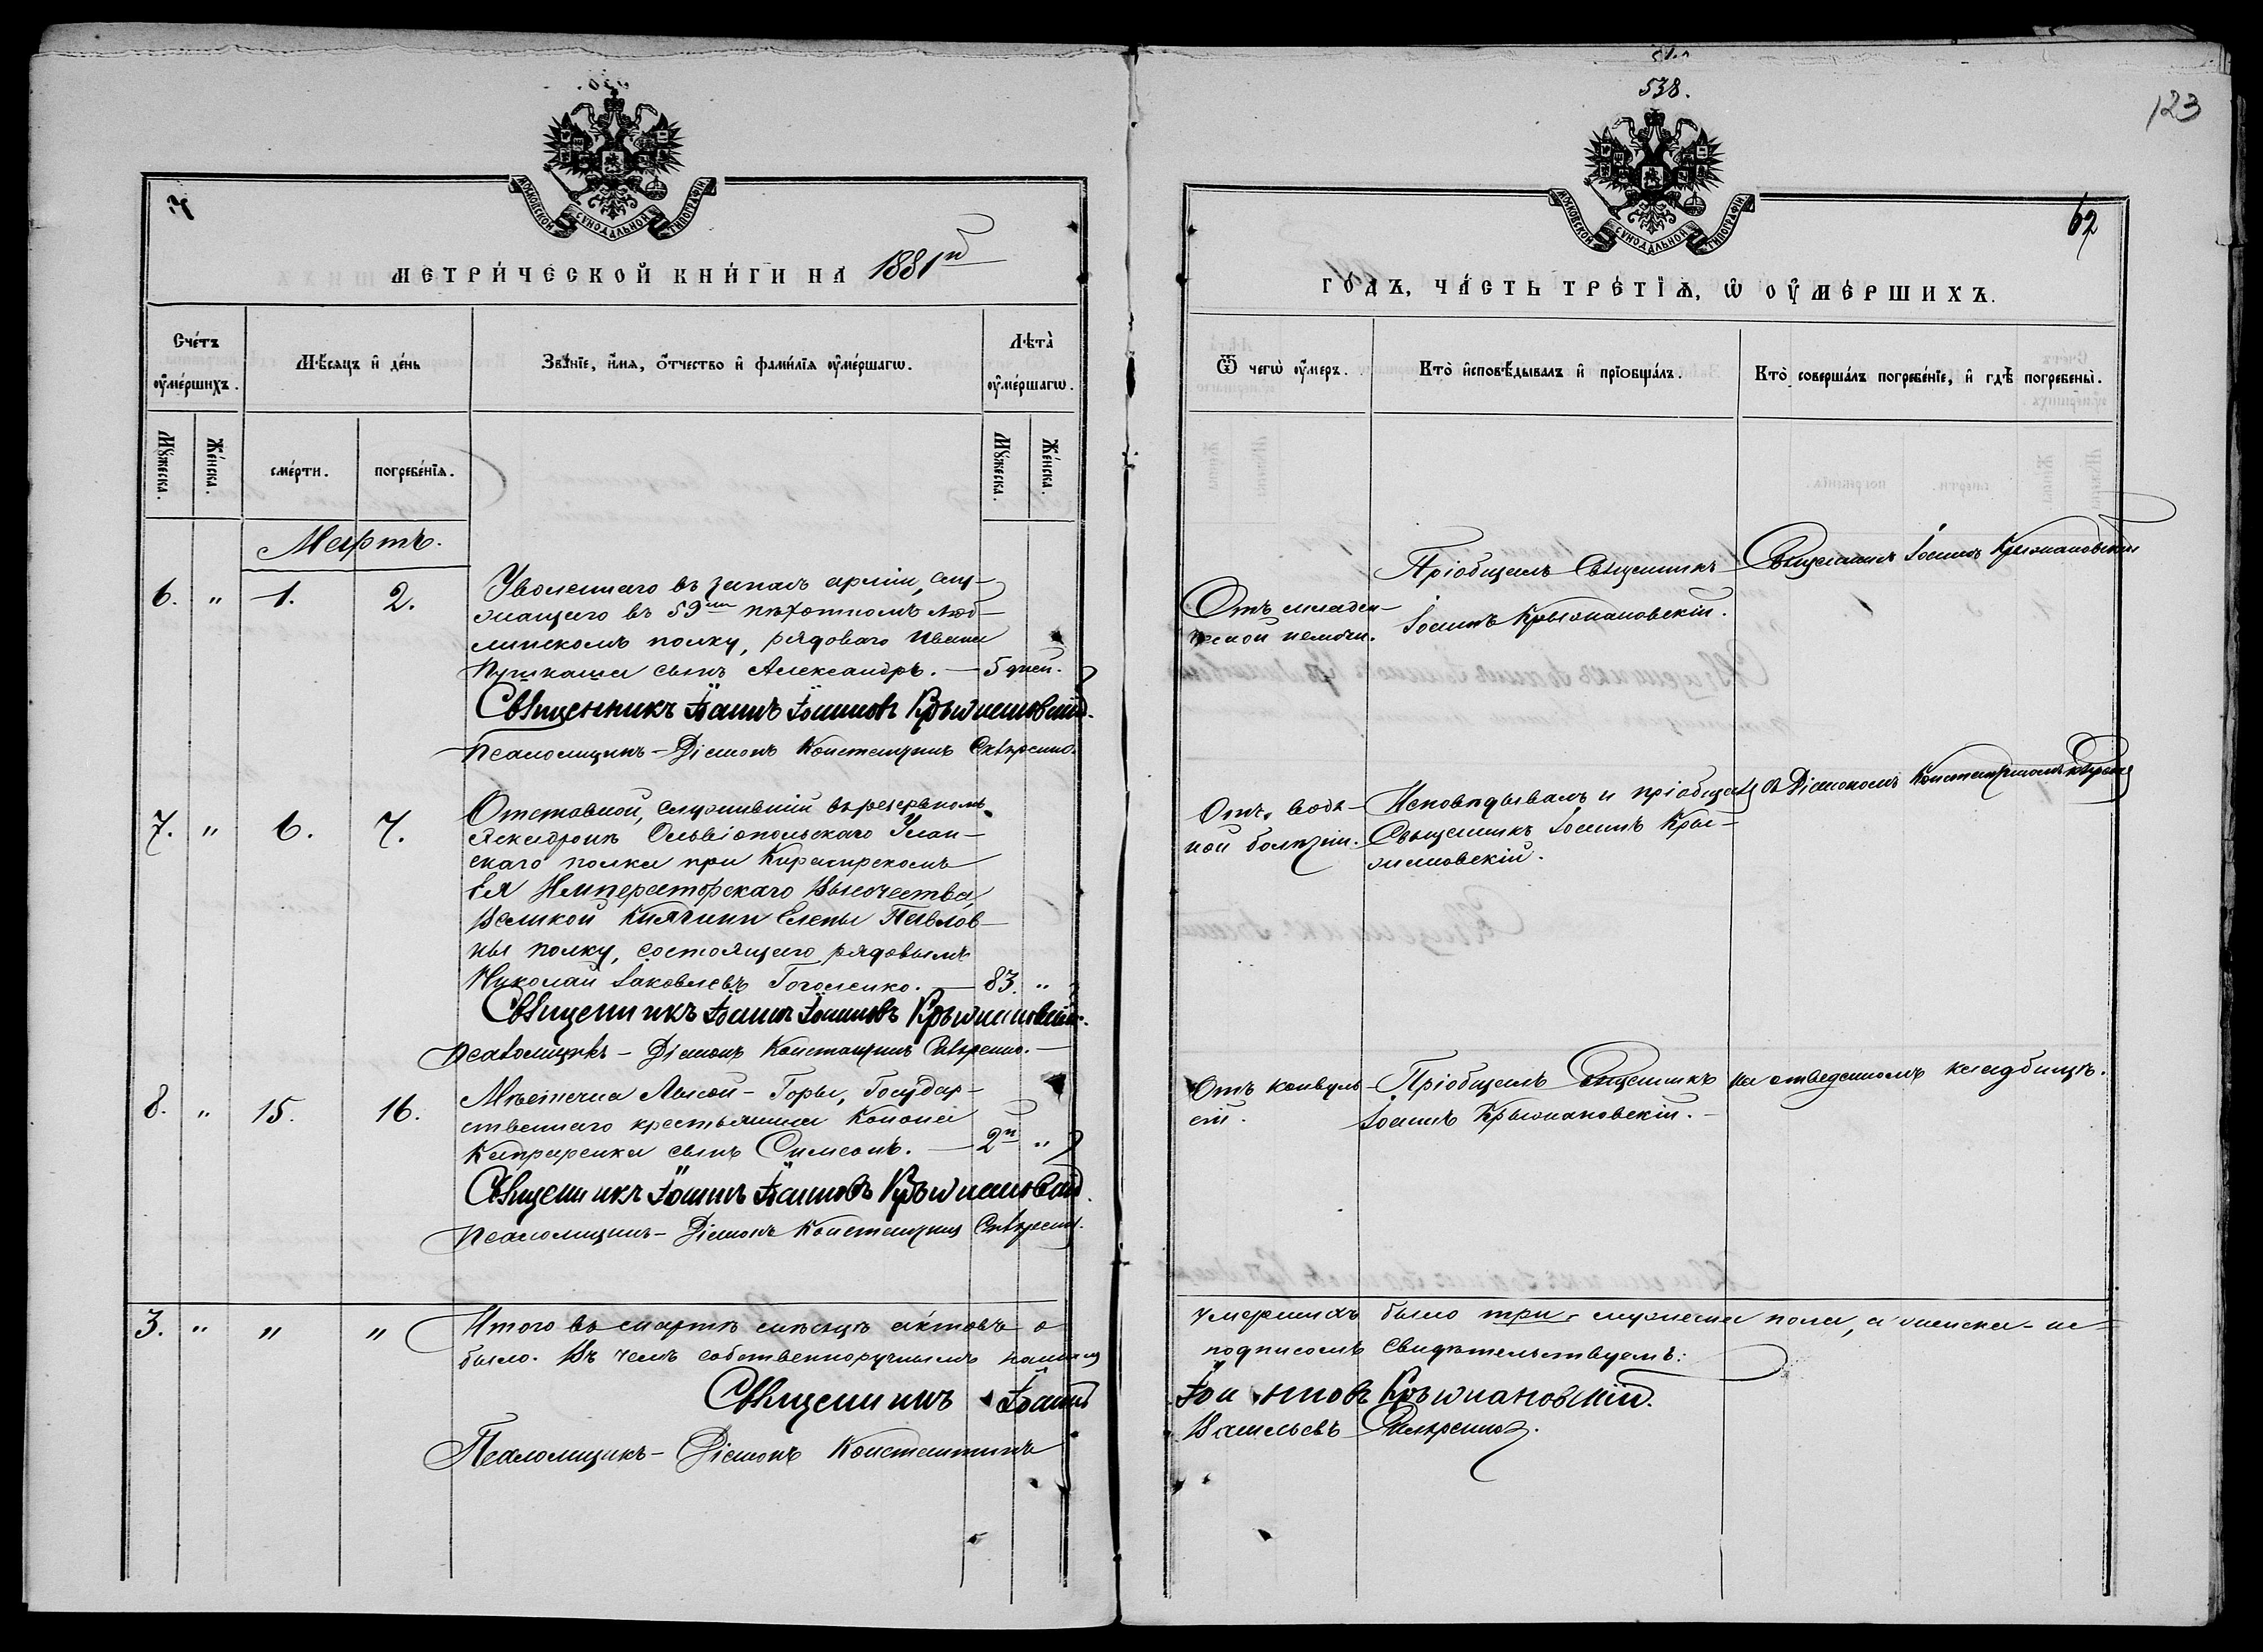 538.
123
МОСКОВСКОЙ СѴНОДАЛЬНОЙ ТИПОГРАФІИ.
МОСКОВСКОЙ СѴНОДАЛЬНОЙ ТИПОГРАФІИ.
62
МЕТРИ́ЧЕСКОЙ КНИ́ГИ НА 1881й
ГО́ДЪ, ЧА́СТЬ ТРЕ́ТЇѦ, Ѡ҆ ОУ҆МЕ́РШИХЪ.
Сче́тъ оу҆ме́ршихъ.
Мѣ́сяцъ и҆ де́нь
Зва́нїе, и҆́мя, о҆́тчество и҆ фами́лїя оу҆ме́ршагѡ.
Лѣта̀ оу҆ме́ршагѡ.
Ѿ чегѡ̀ оу҆́меръ.
Кто̀ и҆сповѣ́дывалъ и҆ прїобща́лъ.
Кто̀ соверша́лъ погребе́нїе, и҆ гдѣ̀ погребены̀.
Мꙋ́жеска.
Же́нска.
сме́рти.
погребе́нїя.
Мꙋ́жеска.
Же́нска.
Мартъ.
6. " 1. 2.
Уволеннаго въ запасъ арміи, слу-
жащаго въ 59мъ пѣхотномъ Люб-
линскомъ полку, рядоваго Ивана
Пушкаша сынъ Александръ. — 5 дней.
Священникъ Іоаннъ Іоанновъ Крыжановскій.
Псаломщикъ - Діаконъ Константинъ
Отъ младен-
ческой немочи.
Пріобщалъ Священникъ
Іоаннъ Крыжановскій.
Священникъ Іоаннъ Крыжановскій
7. " 6. 7.
Отставной, служившій въ резервномъ
эскадронѣ Ольвіопольскаго Улан-
скаго полка при Кирасирскомъ
Ея Императорскаго Высочества,
Великой Княгини Елены Павлов-
ны полку, состоящаго рядовымъ
Николай Іаковлевъ Гоголенко. — 83. "
Священникъ Іоаннъ Іоанновъ Крыжановскій.
Псаломщикъ - Діаконъ Константинъ
Отъ водя-
ной болѣзни.
Исповѣдывалъ и пріобщалъ
Священникъ Іоаннъ Кры-
жановскій.
съ Діакономъ Константиномъ
8. " 15. 16.
Мѣстечка Лысой-Горы, Государ-
ственнаго крестьянина Конона
сынъ Симеонъ. — 2й "
Священникъ Іоаннъ Іоанновъ Крыжановскій.
Псаломщикъ - Діаконъ Константинъ
Отъ конвуль-
сій.
Пріобщалъ Священникъ
Іоаннъ Крыжановскій.
на отведенномъ кладбищѣ.
3. " " "
Итого въ мартѣ мѣсяцѣ актовъ о
умершихъ было три мужеска пола, а женска - не
было. Въ чемъ собственноручнымъ нашимъ
подписомъ свидѣтельствуемъ:
Священникъ Іоаннъ
Іоанновъ Крыжановскій.
Псаломщикъ - Діаконъ Константинъ
Васильевъ